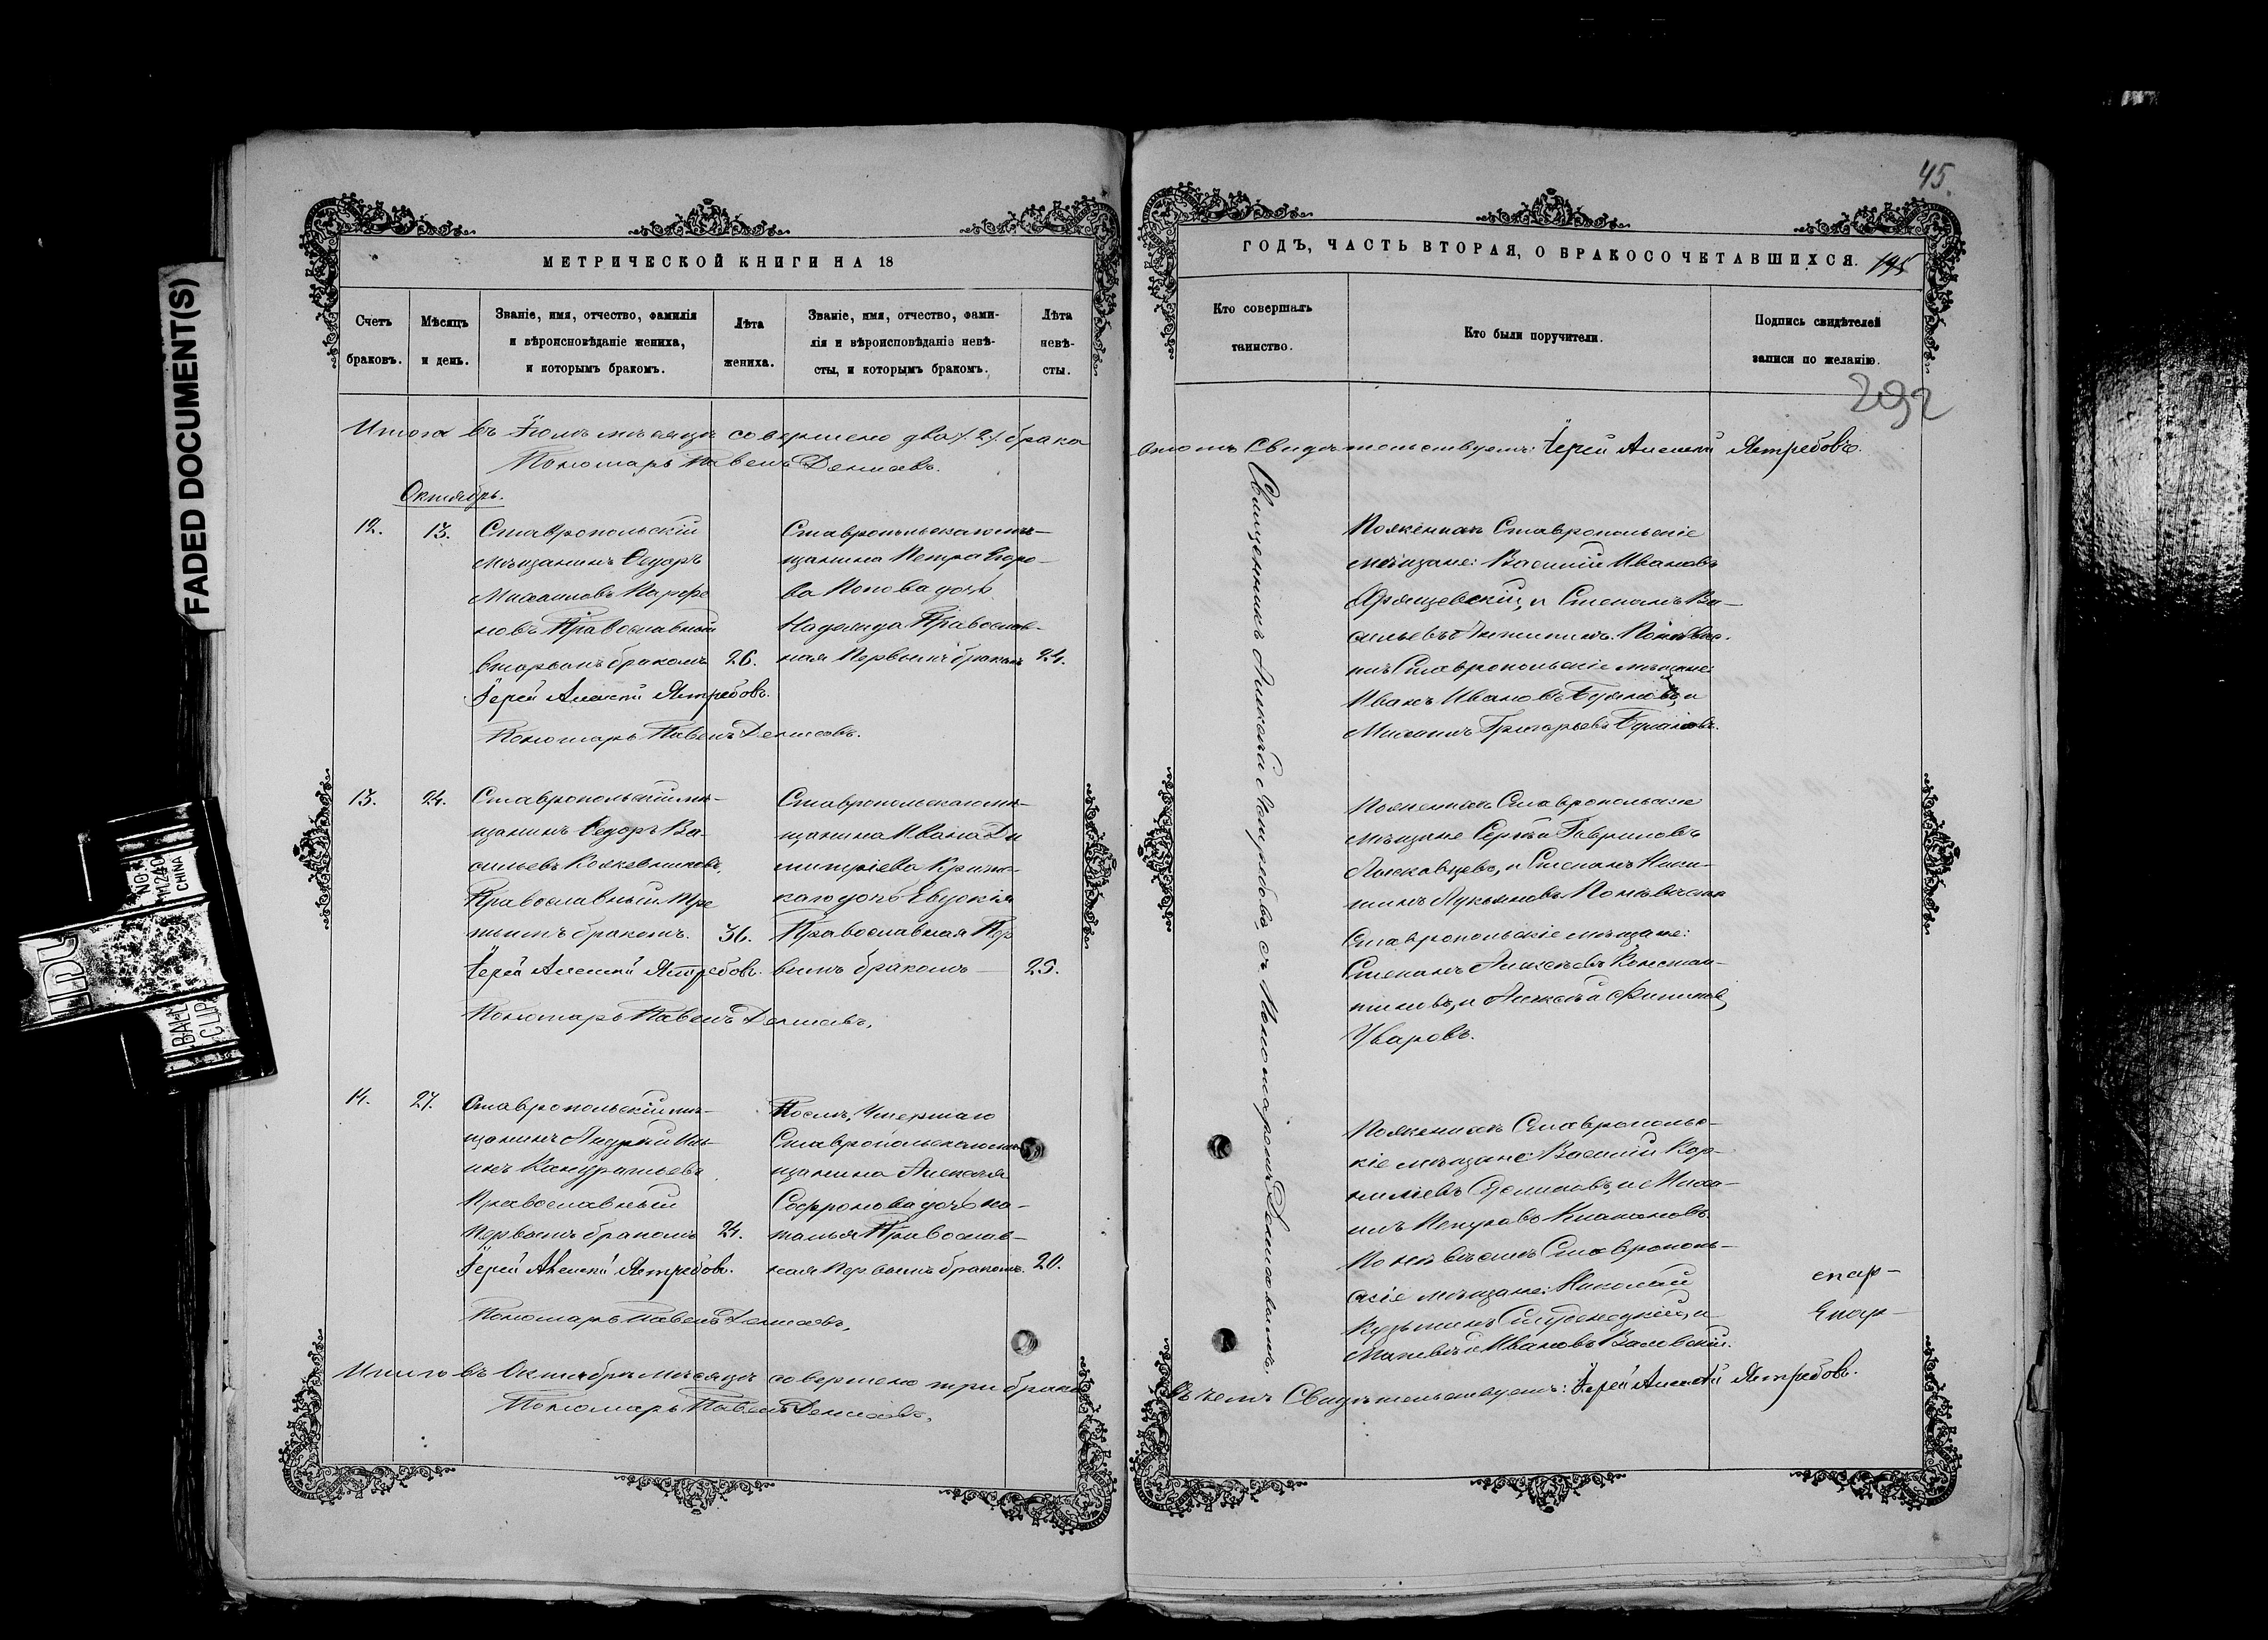 45.
МЕТРИЧЕСКОЙ КНИГИ НА 18
Счетъ браковъ.
Мѣсяцъ и день.
Званіе, имя, отчество, фамилія и вѣроисповѣданіе жениха, и которымъ бракомъ.
Лѣта жениха.
Званіе, имя, отчество, фамилія и вѣроисповѣданіе невѣсты, и которымъ бракомъ.
Лѣта невѣсты.
Итого въ Іюлѣ мѣсяцѣ совершено два /2/ брака
Пономарь Павелъ Денисовъ.
Октябрь.
12. 13.
Ставропольскій
мѣщанинъ Ѳедоръ
Михаиловъ Парфе
новъ Православный
вторымъ бракомъ 26.
Іерей Алексій Ястребовъ.
Пономарь Павелъ Денисовъ.
Ставропольскаго мѣ-
щанина Петра Егоро-
ва Попова дочь
Надежда Православ-
ная Первымъ бракомъ 24.
13. 24.
Ставропольскій мѣ-
щанинъ Ѳедоръ Ва-
сильевъ Кожевниковъ,
Православный тре
тьимъ бракомъ. 36.
Іерей Алексій Ястребовъ.
Пономарь Павелъ Денисовъ.
Ставропольскаго мѣ-
щанина Ивана Ди
митріева
дочь Евдокія
Православная Пер
вымъ бракомъ 25.
14. 27.
Ставропольскій мѣ-
щанинъ Андрей Иль-
инъ Кондратьевъ
Православный
Первымъ бракомъ 24.
Іерей Алексій Ястребовъ.
Пономарь Павелъ Денисовъ.
Послѣ Умершаго
Ставропольскаго мѣ-
щанина Алексѣя
Софронова дочь На-
талья Православ-
ная Первымъ бракомъ. 20.
Итого въ Октябрѣ мѣсяцѣ совершено три брака
Пономарь Павелъ Денисовъ.
ГОДЪ, ЧАСТЬ ВТОРАЯ, О БРАКОСОЧЕТАВШИХСЯ.
195
Кто совершалъ таинство.
Кто были поручители.
Подпись свидѣтелей записи по желанію.
292
Свидѣтельствуетъ: Іерей Алексій Ястребовъ.
Священникъ Алексѣй Ястребовъ, съ Пономаремъ Денисовымъ.
По женихѣ Ставропольскіе
мѣщане: Василій Ивановъ
и Степанъ Ва-
сильевъ По невѣс-
тѣ Ставропольскіе мѣщане:
Иванъ Ивановъ и
Михаилъ Григорьевъ
По женихѣ Ставропольскіе
мѣщане Сергѣй Гавриловъ
и Степанъ Ники-
тинъ Лукьяновъ По невѣстѣ
Ставропольскіе мѣщане:
Степанъ Алексѣевъ Констан-
тиновъ, и Алексѣй Филиповъ
Уваровъ.
По женихѣ Ставропольс-
кіе мѣщане: Василій Кор-
ниліевъ и Миха-
илъ
По невѣстѣ Ставрополь-
скіе мѣщане: Николай
Кузьминъ и
Ивановъ
Въ чемъ Свидѣтельствуетъ: Іерей Алексій Ястребовъ.
FADED DOCUMENT(S)
NO.
CHINA
CLIP